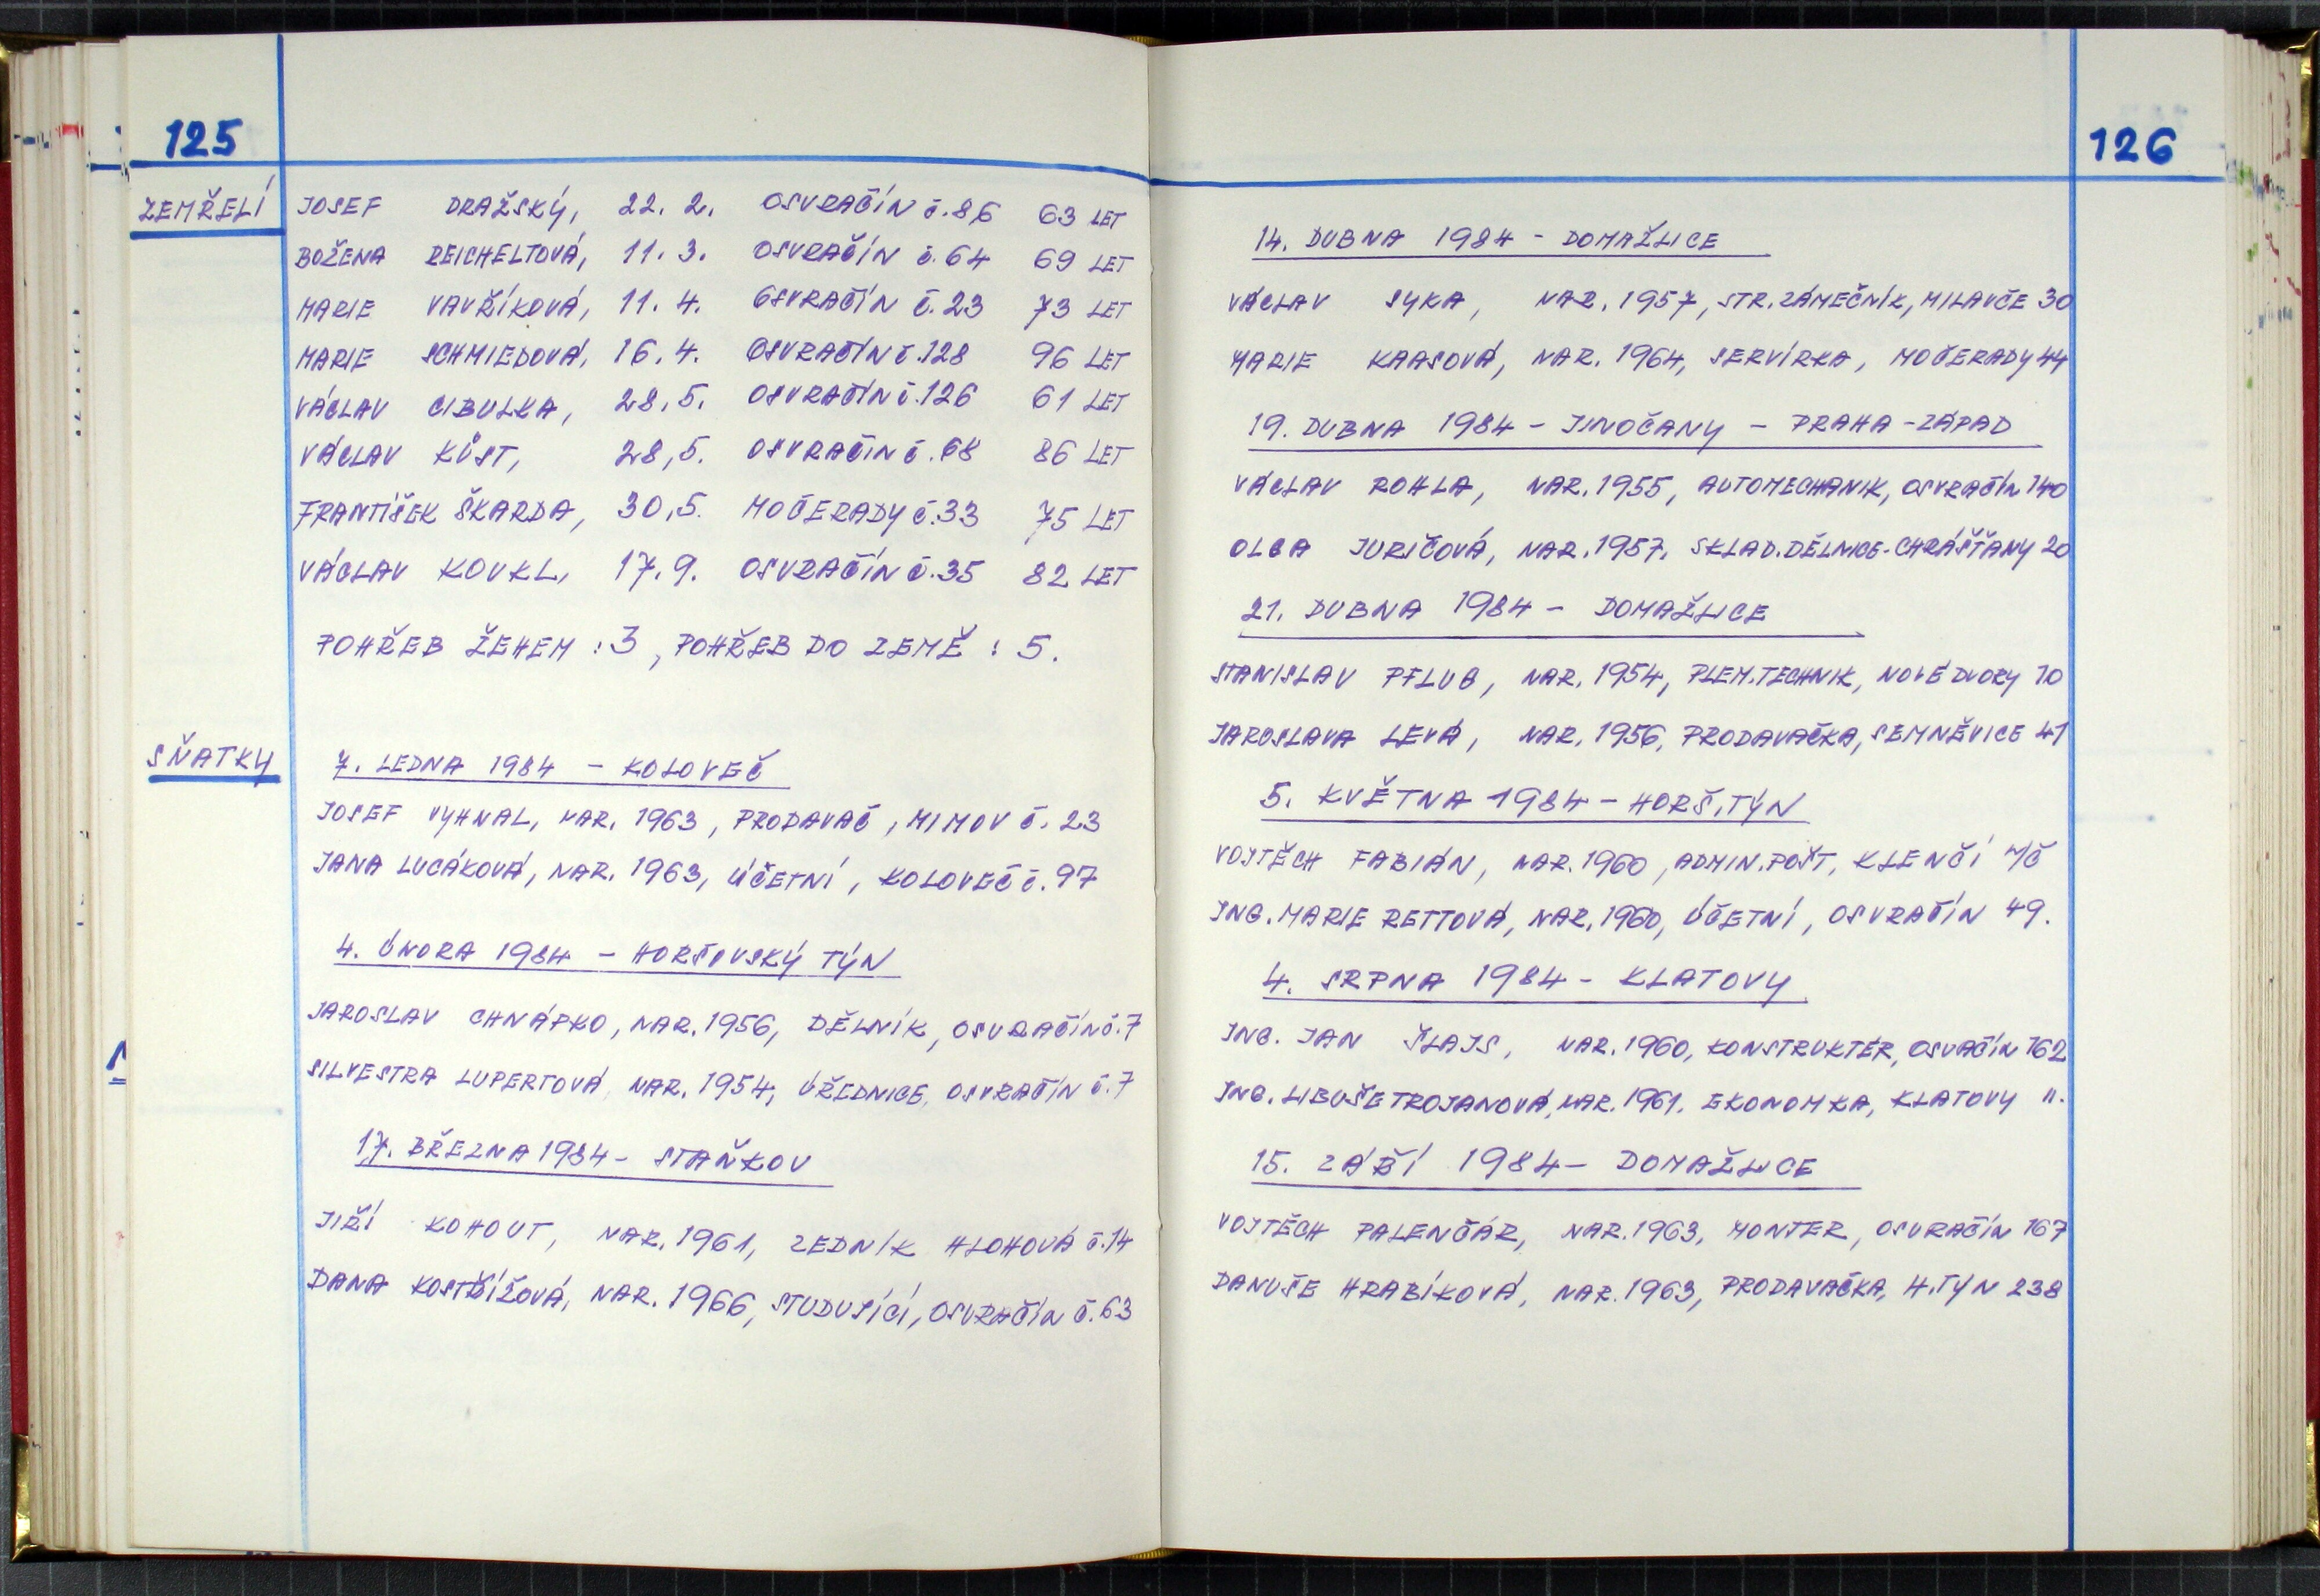 125
ZEMŘELÍ
JOSEF DRAŽSKÝ, 22. 2. OSVRAČÍN č. 86 63 LET
BOŽENA REICHELTOVÁ, 11. 3. OSVRAČÍN č. 64 69 LET
MARIE VAVŘÍKOVÁ, 11. 4. OSVRAČÍN č. 23 73 LET
MARIE SCHMIEDOVÁ, 16. 4. OSVRAČÍN č. 128 96 LET
VÁCLAV CIBULKA, 28. 5. OSVRAČÍN č. 126 61 LET
VÁCLAV KŮST, 28, 5. OSVRAČÍN č. 68 86 LET
FRANTIŠEK ŠKARDA, 30, 5. MOČERADY č. 33 75 LET
VÁCLAV KOUKL, 17. 9. OSVRAČÍN č. 35 82 LET
POHŘEB ŽEHEM : 3, POHŘEB DO ZEMĚ : 5.
SŇATKY
7. LEDNA 1984 - KOLOVEČ
JOSEF VYHNAL, NAR. 1963, PRODAVAČ, MIMOV č. 23
JANA LUCÁKOVÁ, NAR. 1963, ÚČETNÍ, KOLOVEČ č. 97
4. ÚNORA 1984 - HORŠOVSKÝ TÝN
JAROSLAV CHNÁPKO, NAR. 1956, DĚLNÍK, OSVRAČÍN č. 7
SILVESTRA LUPERTOVÁ, NAR. 1954, ÚŘEDNICE, OSVRAČÍN č. 7
17. BŘEZNA 1984 - STAŇKOV
JIŘÍ KOHOUT, NAR. 1961, ZEDNÍK HLOHOVÁ č. 14
DANA KOSTŘÍŽOVÁ, NAR. 1966, STUDUJÍCÍ, OSVRAČÍN č. 63
126
14. DUBNA 1984 - DOMAŽLICE
VÁCLAV SYKA, NAR. 1957, STR. ZÁMEČNÍK, MILAVČE 30
MARIE KAASOVÁ, NAR. 1964, SERVÍRKA, MOČERADY 44
19. DUBNA 1984 - JINOČANY - PRAHA - ZÁPAD
VÁCLAV ROHLA, NAR. 1955, AUTOMECHANIK, OSVRAČÍN 140
OLGA JURIČOVÁ, NAR. 1957, SKLAD. DĚLNICE - CHRÁŠŤANY 20
21. DUBNA 1984 - DOMAŽLICE
STANISLAV PFLUG, NAR. 1954, PLEM. TECHNIK, NOVÉ DVORY 10
JAROSLAVA LEVÁ, NAR. 1956, PRODAVAČKA, SEMNĚVICE 41
5. KVĚTNA 1984 - HORŠ. TÝN
VOJTĚCH FABIÁN, NAR. 1960, ADMIN. POŠT, KLENČÍ P/Č
ING. MARIE RETTOVÁ, NAR. 1960, ÚČETNÍ, OSVRAČÍN 49.
4. SRPNA 1984 - KLATOVY
ING. JAN ŠLAJS, NAR. 1960, KONSTRUKTÉR, OSVAČÍN 162
ING. LIBUŠE TROJANOVÁ, NAR. 1961, EKONOMKA, KLATOVY II.
15. ZÁŘÍ 1984 - DOMAŽLICE
VOJTĚCH PALENČÁR, NAR. 1963, MONTER, OSVRAČÍN 167
DANUŠE HRABÍKOVÁ, NAR. 1963, PRODAVAČKA, H. TÝN 238